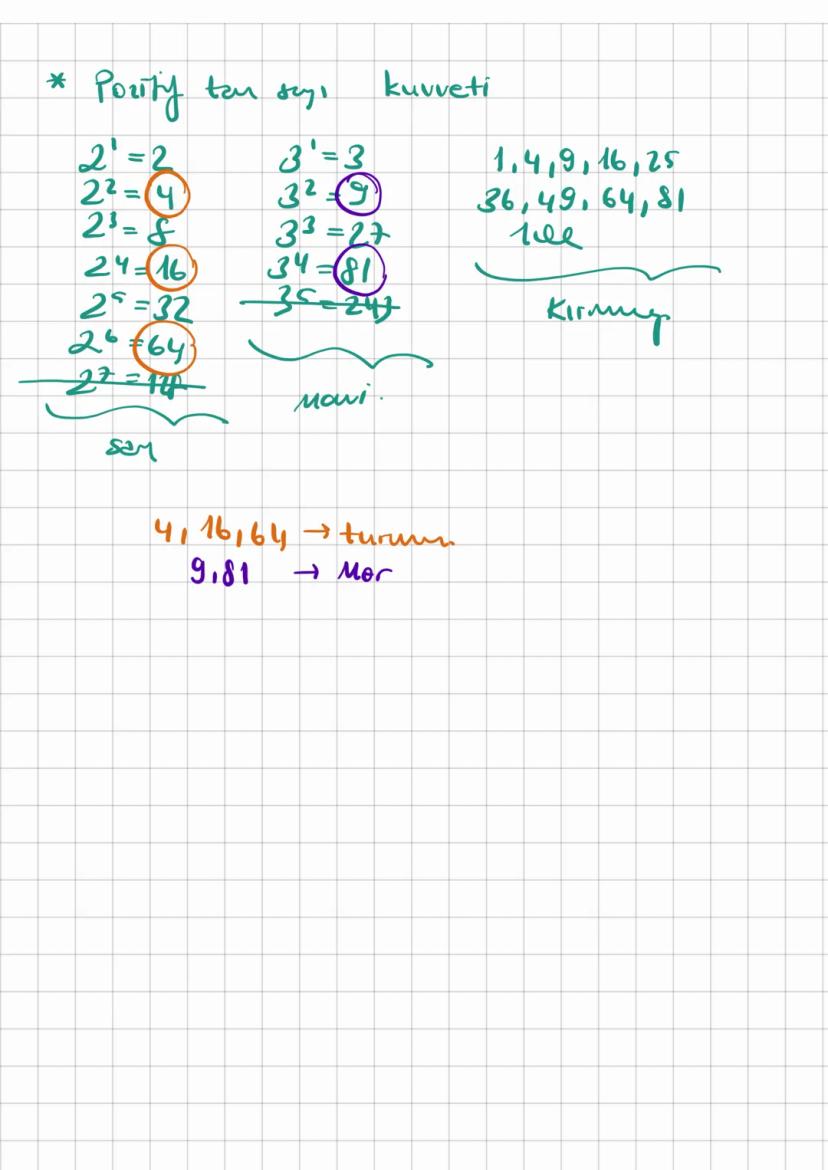 * Pozitif tam sayı kuvveti
2¹ = 2
2² = 4
2³ = 8
2⁴ = 16
2⁵ = 32
2⁶ = 64
2⁷ =
sarı
3¹ = 3
3² = 9
3³ = 27
3⁴ = 81
3⁵ = 243
mavi.
1, 4, 9, 16, 25
36, 49, 64, 81
100
Kırmızı
4, 16, 64 → turuncu
9, 81 → Mor